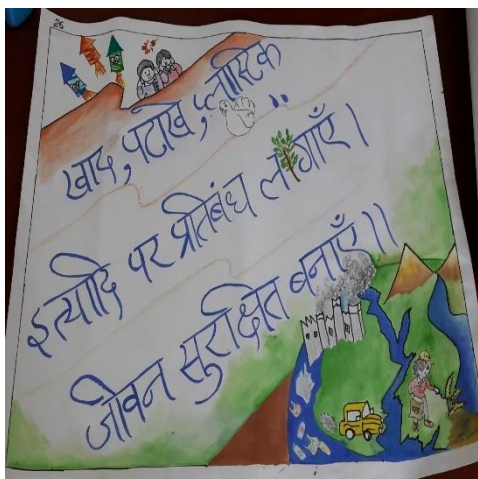 26
खाद, पटाखे, प्लास्टिक
इत्यादि पर प्रतिबंध लगाएँ।
जीवन सुरक्षित बनाएँ॥